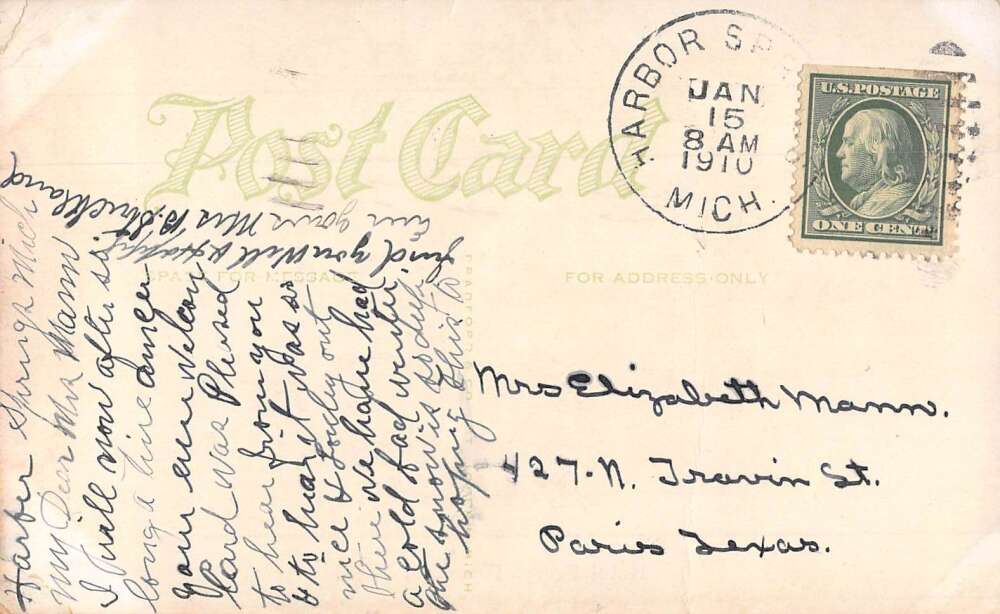 Post Card
HARBOR SP
JAN
15
8 AM
1910
MICH.
U.S. POSTAGE
ONE CENT
SPACE FOR MESSAGE
FOR ADDRESS ONLY
Harber Springs Mich
My Dear Mrs Mann
I will now after so
long a time anser
your ever welcom
card was Plesed
to hear from you
& to hear it was so
nice & lovly out
there we have had
a cold bad winter
the snow is so deep
hoping this w
find you Well & Happy
ever yours Mrs B. Strickland
Mrs Elizabeth Mann.
427-N. Travin St.
Paris Texas.